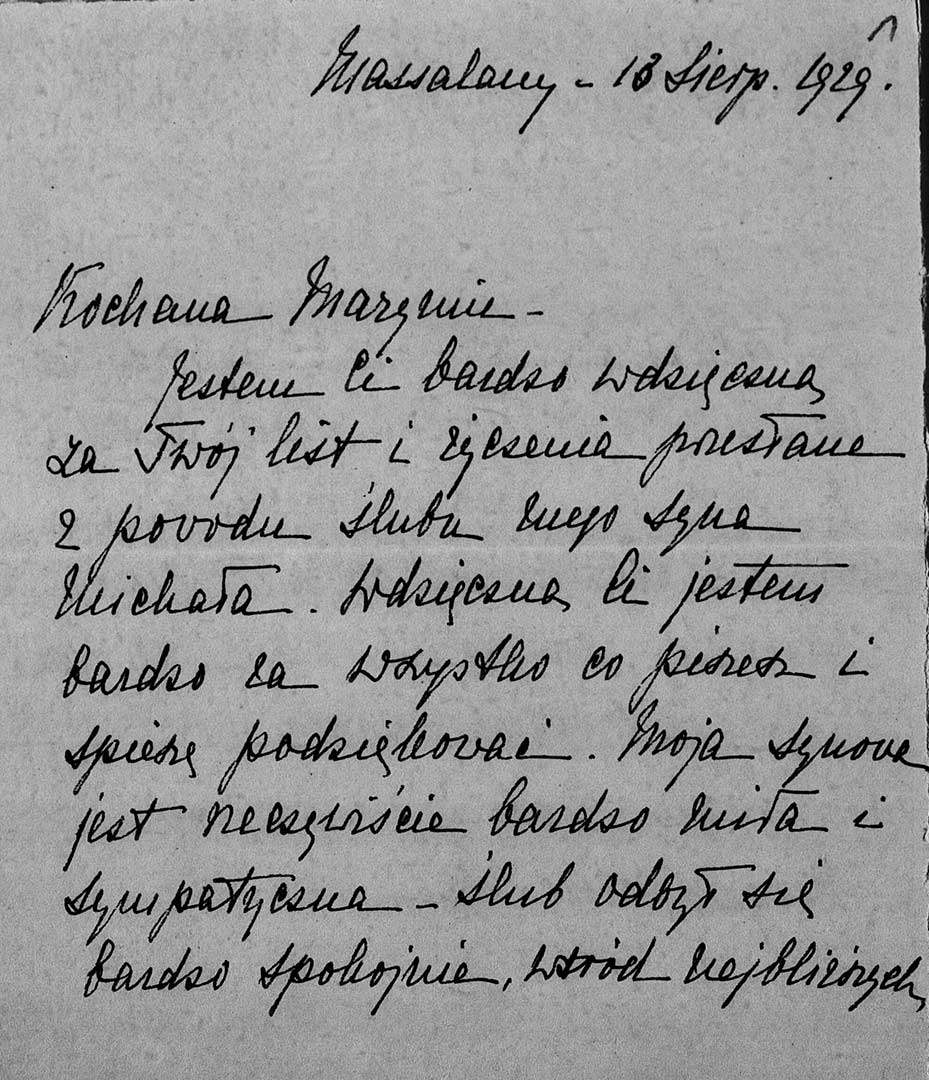 Massalany - 18 Sierp. 1929.
Kochana Maryniu -
Jestem Ci bardzo wdzięczną
za Twój list i życzenia przesłane
z powodu ślubu mego syna
Michała. Wdzięczną Ci jestem
bardzo za wszystko co piszesz i
spieszę podziękować. Moja synowa
jest rzeczywiście bardzo miła i
sympatyczna - ślub odbył się
bardzo spokojnie, wśród najbliższych